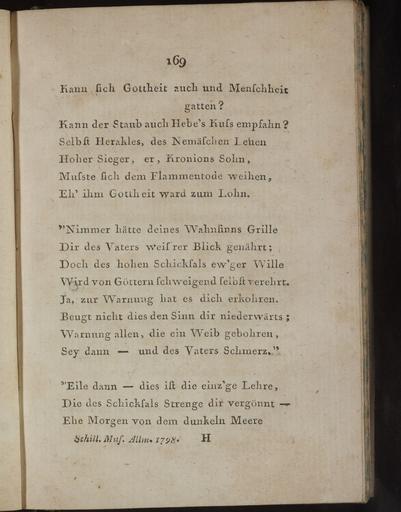 169
Kann ſich Gottheit auch und Menſchheit
gatten?
Kann der Staub auch Hebe's Kuſs empfahn?
Selbſt Herakles, des Nemäſchen Leuen
Hoher Sieger, er, Kronions Sohn,
Muſste ſich dem Flammentode weihen,
Eh' ihm Gottheit ward zum Lohn.
"Nimmer hätte deines Wahnſinns Grille
Dir des Vaters weiſ'rer Blick genährt;
Doch des hohen Schickſals ew'ger Wille
Wird von Göttern ſchweigend ſelbſt verehrt.
Ja, zur Warnung hat es dich erkohren.
Beugt nicht dies den Sinn dir niederwärts;
Warnung allen, die ein Weib gebohren,
Sey dann — und des Vaters Schmerz."
"Eile dann — dies iſt die einz'ge Lehre,
Die des Schickſals Strenge dir vergönnt —
Ehe Morgen von dem dunkeln Meere
Schill. Muſ. Allm. 1798. H